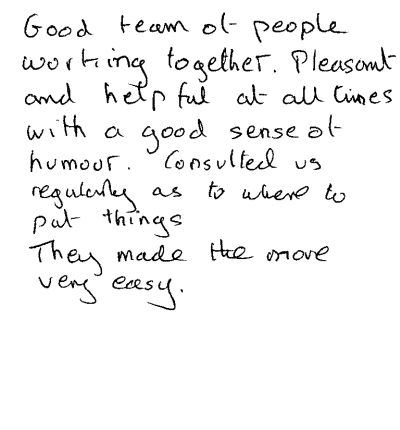 Good team of people
working together. Pleasant
and helpful at all times
with a good sense of
humour. Consulted us
regularly as to where to
put things
They made the move
very easy.